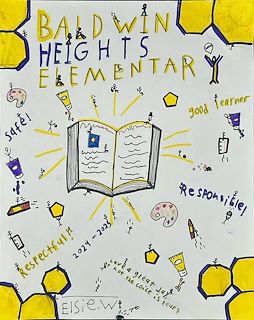 BALDWIN
HEIGHTS
ELEMENTAR
good learner
Safe!
Responsible!
Respectful!
2024-2025
have a great day
not the choice is yours
Elsie.W